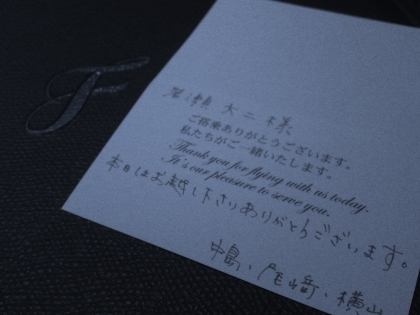 F
尾瀬 大二 様
ご搭乗ありがとうございます。
私たちがご一緒いたします。
Thank you for flying with us today.
It's our pleasure to serve you.
本日はお越し下さりありがとうございます。
中島、尾崎、横山